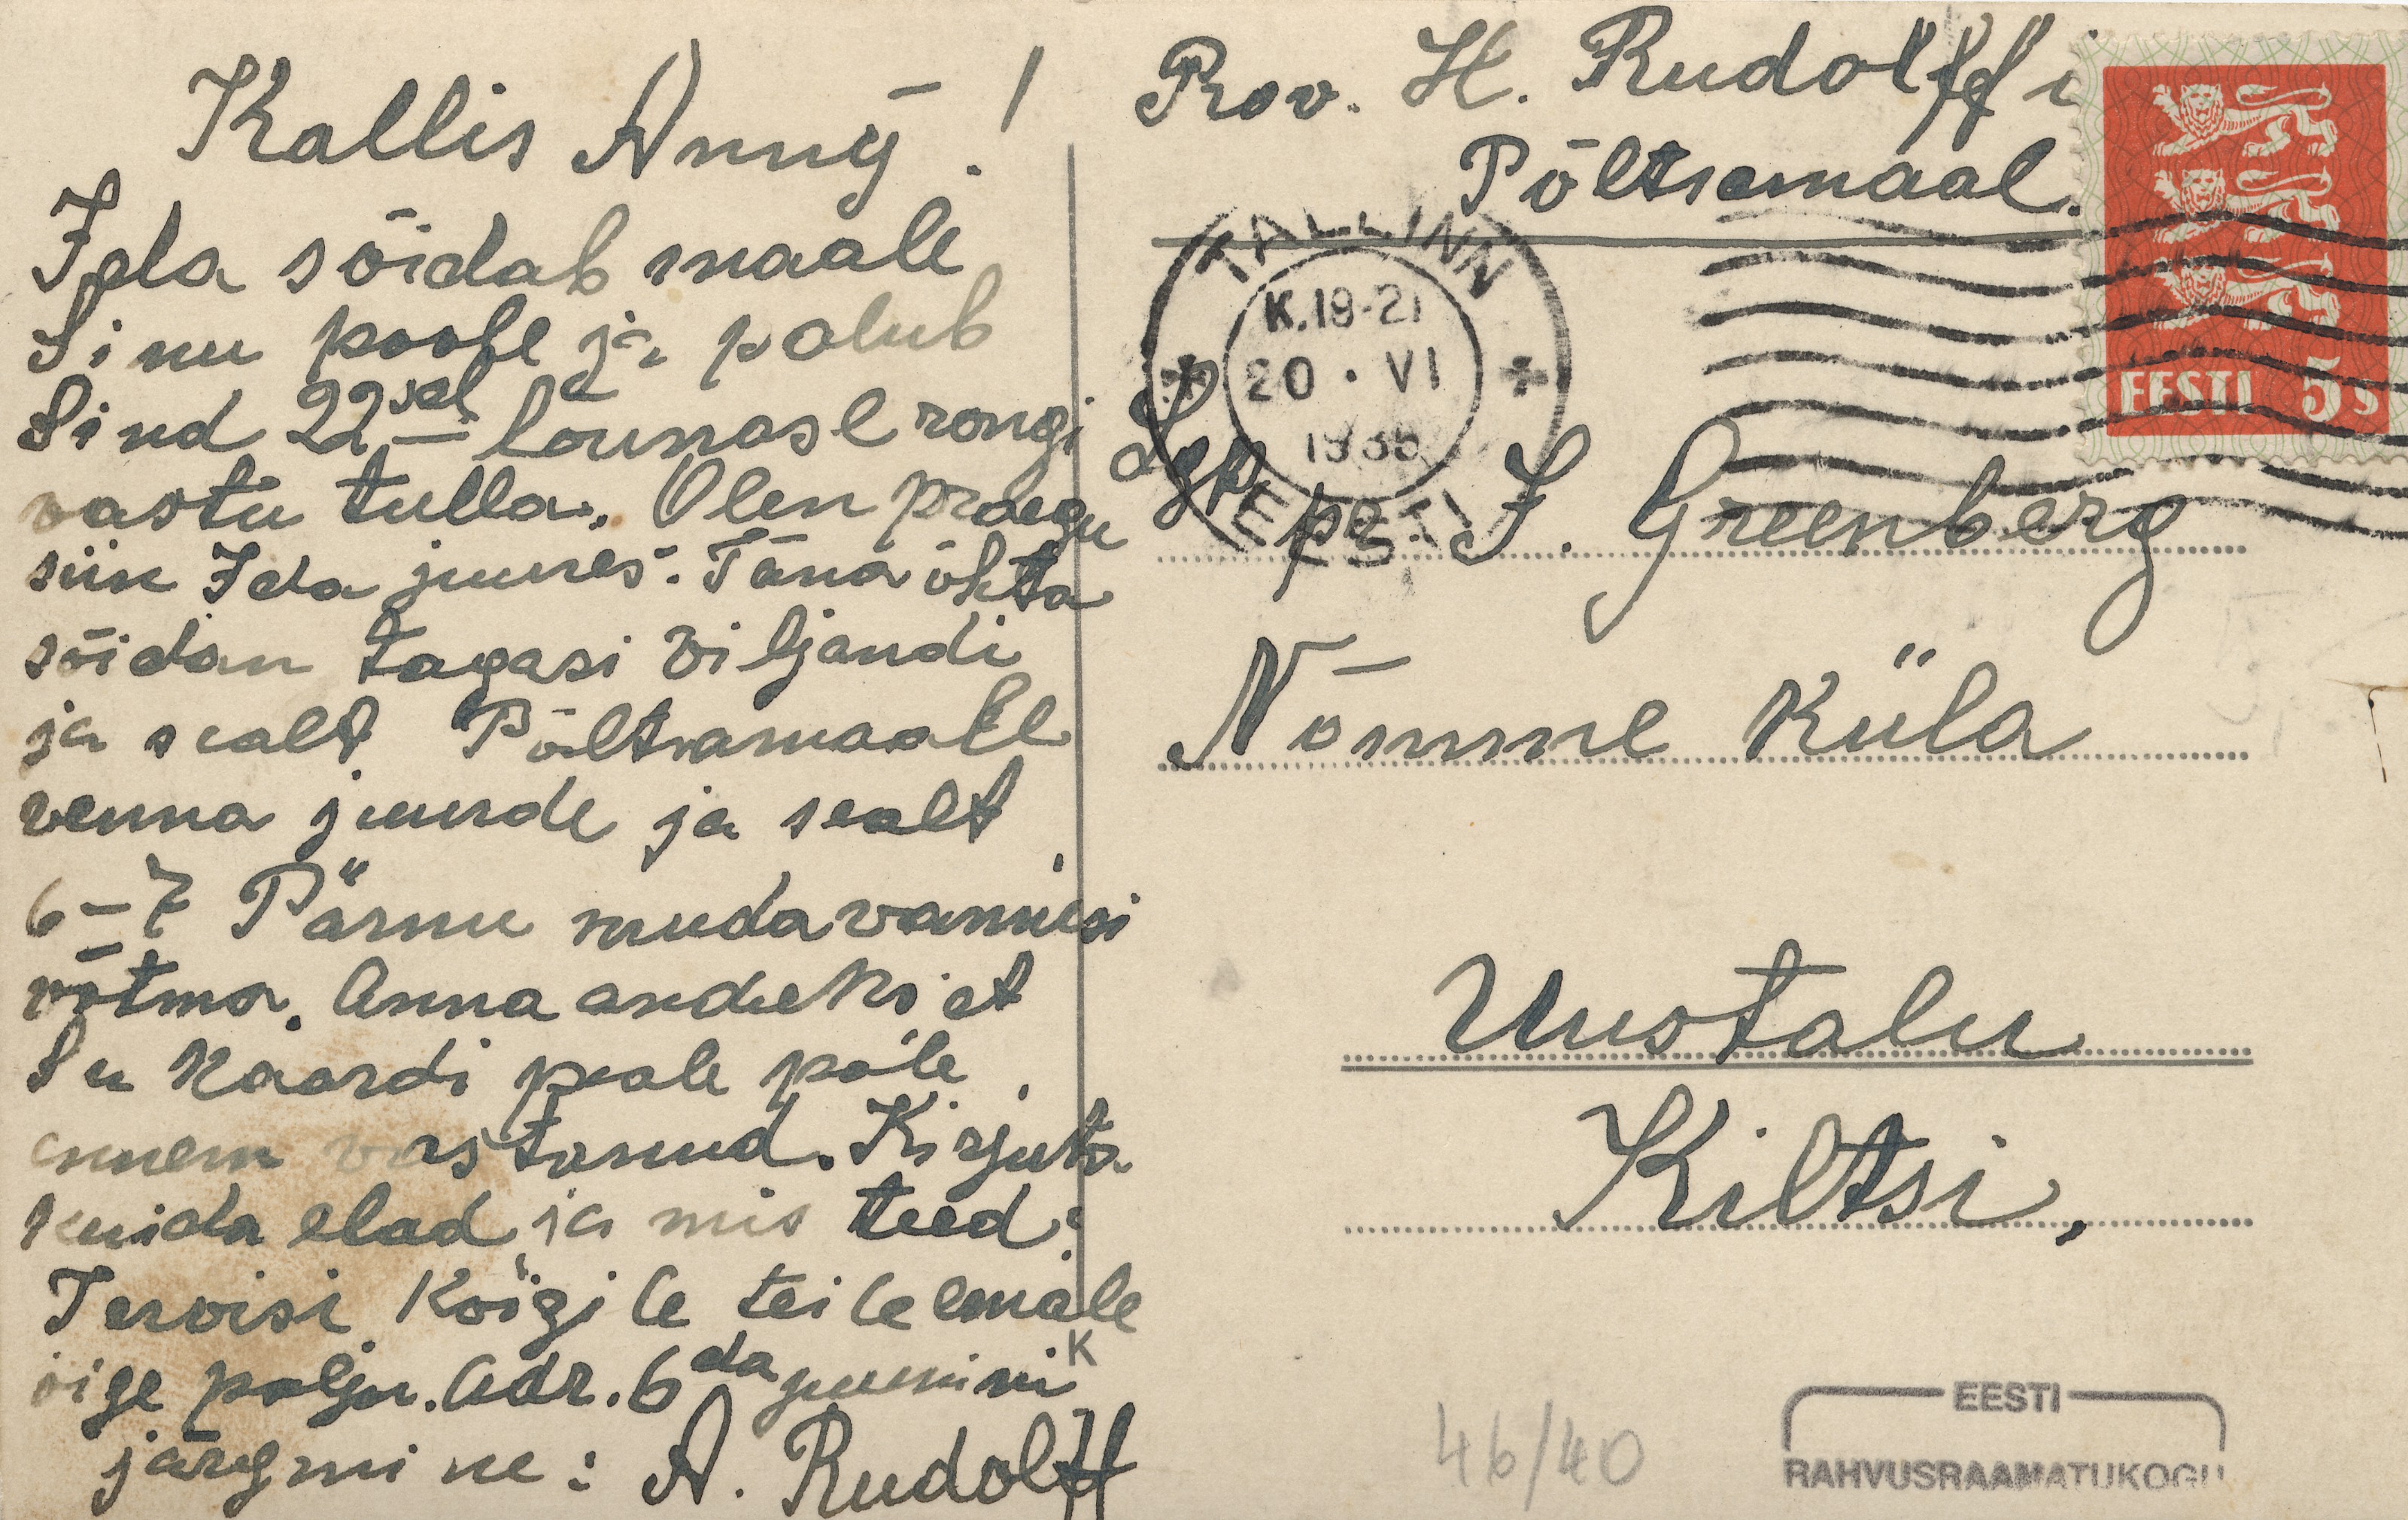 Kallis Anny!
Ida sõidab maale
Sinu poole ja palub
Sind 22sel lõunase rongi
vastu tulla. Olen praegu
siin Ida juures. Täna õhta
sõidan tagasi Viljandi
ja sealt Põltsamaale
venna juurde ja sealt
6-7 Pärnu mudavannisi
võtma. Anna andeks et
Su kaardi peale pole
ennem vastanud. Kirjuta
kuida elad ja mis teed.
Tervisi kõigile teile emale
õige palju. Adr. 6da juunini
järgmine: A. Rudolff
K
Prov. H. Rudolffi
Põltsamaal.
EESTI 5 S
TALLINN
K.19-21
20 · VI
EESTI
Lgp pr. I. Greenberg
Nõmme küla
Uustalu
Kiltsi,
46/40
EESTI
RAHVUSRAAMATUKOGU